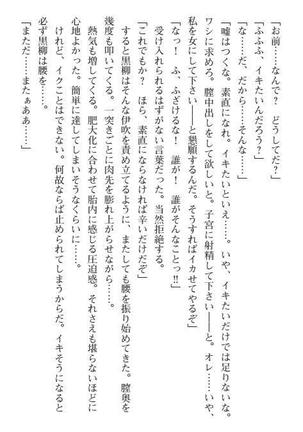 「お前……なんで？　どうしてだ？」
「ふふふ、イキたいんだろう？」
「な……だ、だから……そんな……」
「嘘はつくな。素直になれ。イキたいといえ……。いや、イキたいだけでは足りないな。
ワシに求めろ。膣中出しをして欲しいと。子宮に射精して下さい――と。オレ……いや、
私を女にして下さい――と懇願するんだ。そうすればイカせてやるぞ」
「なっ！　ふ、ふざけるな！　誰が！　誰がそんなことっ‼」
　受け入れられるはずがない言葉だった。当然拒絶する。
「これでもか？　ほら、素直にならなければ辛いだけだぞ」
　すると黒柳はそんな伊吹を責め立てるように、またしても腰を振り始めてきた。膣奥を
幾度も叩いてくる。一突きごとに肉先を膨れ上がらせながら……。
　熱気も増してくる。肥大化に合わせて胎内に感じる圧迫感。それさえも堪らないほどに
心地よかった。簡単に達してしまいそうなくらいに……。
　けれど、イクことはできない。何故ならば止められてしまうからだ。イキそうになると
必ず黒柳は腰を……。
「まただ……またぁああ……」